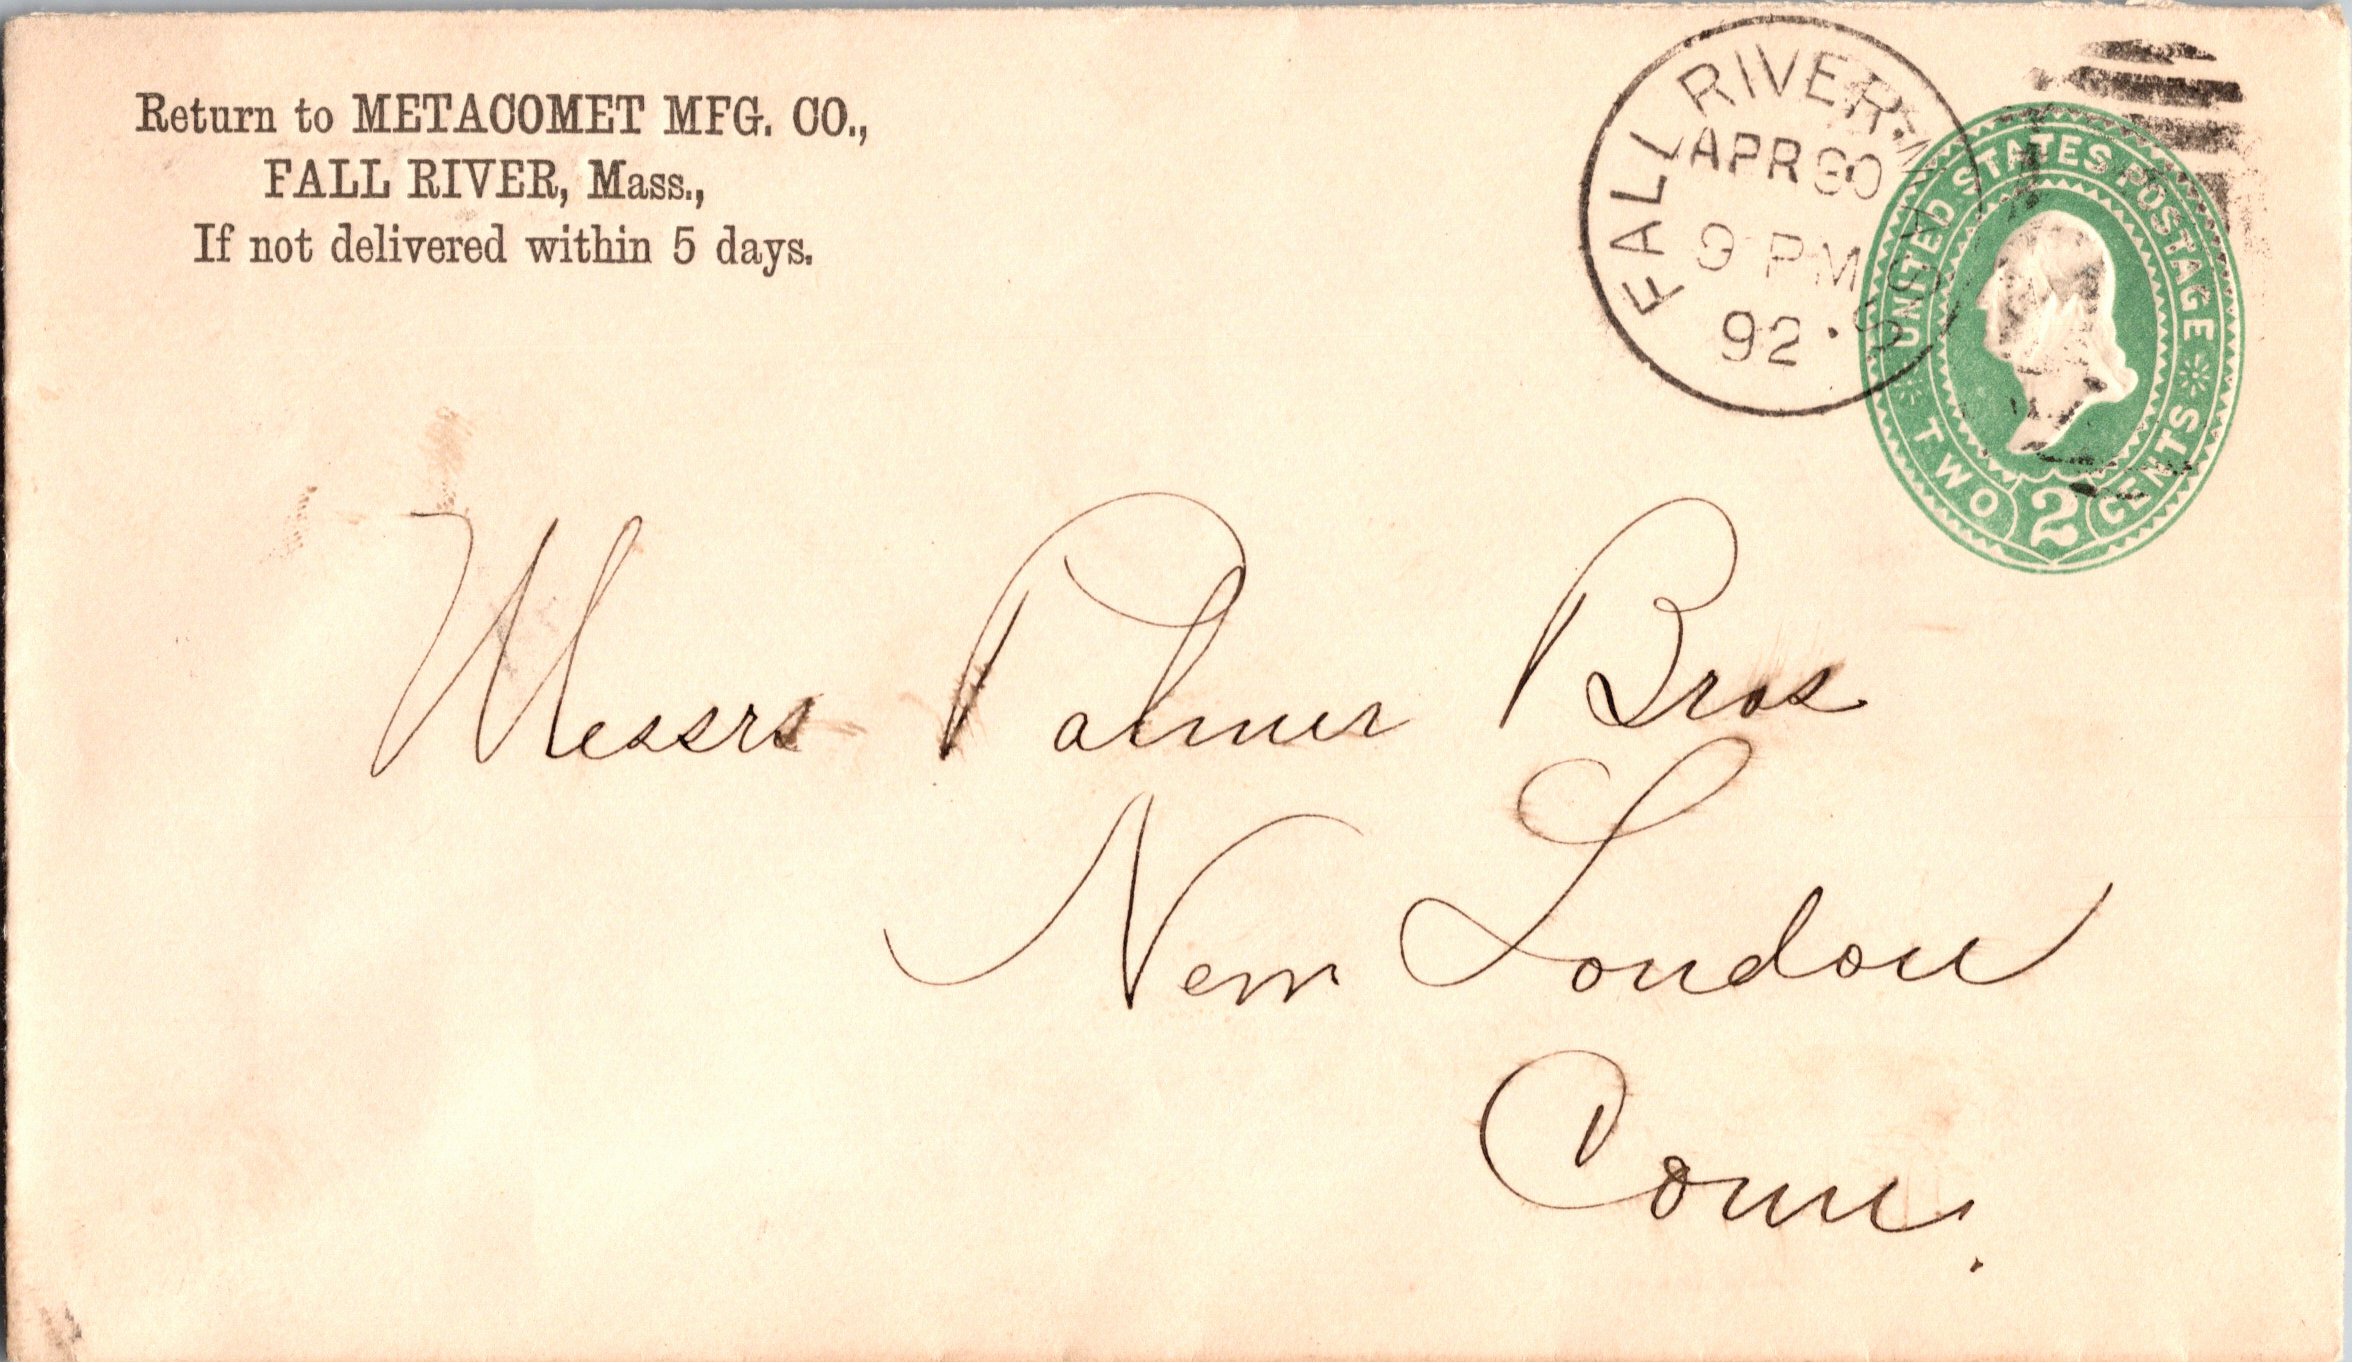 Return to METACOMET MFG. CO.,
FALL RIVER, Mass.,
If not delivered within 5 days.
FALL RIVER. MASS.
APR 30
9 PM
92
UNITED STATES POSTAGE
TWO 2 CENTS
Messrs Palmer Bros
New London
Conn.